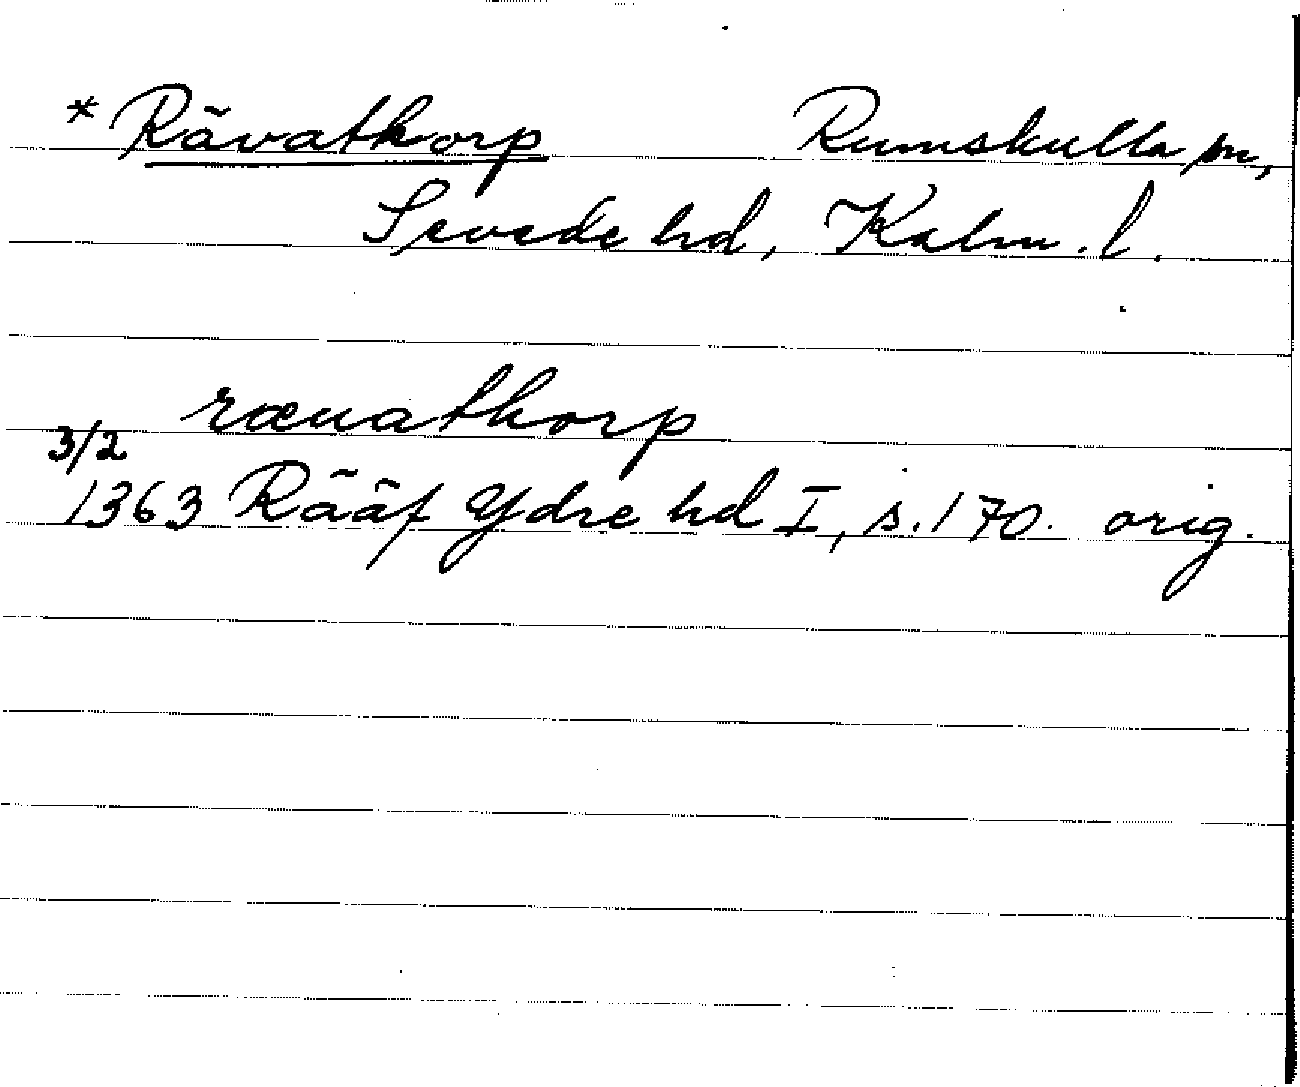 * Rävathorp Rumskulla sn,
Sevede hd, Kalm. l.
rœuathorp
3/2
1363 Rääf Ydre hd I, s. 170. orig.